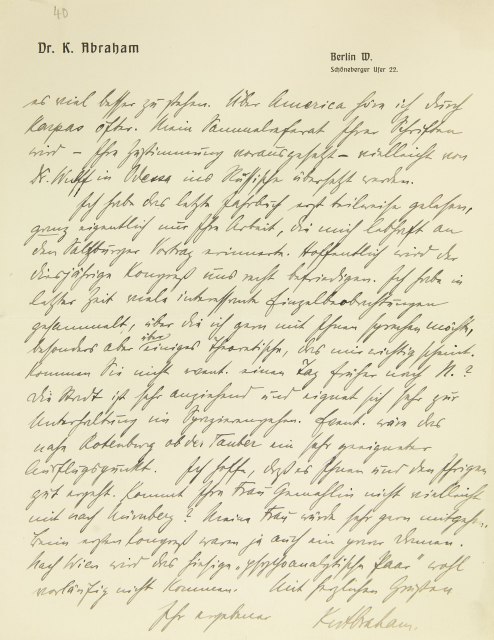 40
Dr. K. Abraham
Berlin W.
Schöneberger Ufer 22.
es viel besser zu stehen. Über America höre ich durch
Karpas öfter. Mein Sammelreferat Ihrer Schriften
wird – Ihre Zustimmung vorausgesetzt – vielleicht von
Dr. Wulff in Odessa ins Russische übersetzt werden.
Ich habe das letzte Jahrbuch erst teilweise gelesen,
ganz eigentlich nur Ihre Arbeit, die mich lebhaft an
den Salzburger Vortrag erinnerte. Hoffentlich wird der
diesjährige Kongreß uns recht befriedigen. Ich habe in
letzter Zeit viele interessante Einzelbeobachtungen
gesammelt, über die ich gern mit Ihnen sprechen möchte,
besonders aber über einiges Theoretische, das mir wichtig scheint.
Kommen Sie nicht event. einen Tag früher nach N.?
Die Stadt ist sehr anziehend und eignet sich sehr zur
Unterhaltung im Spazierengehen. Event. wäre das
nahe Rotenburg ob der Tauber ein sehr geeigneter
Ausflugspunkt. Ich hoffe, daß es Ihnen und den Ihrigen
gut ergeht. Kommt Ihre Frau Gemahlin nicht vielleicht
mit nach Nürnberg? Meine Frau würde sehr gern mitgehen.
Beim ersten Congreß waren ja auch ein paar Damen.
Nach Wien wird das hiesige „psychoanalytische Paar" wohl
vorläufig nicht kommen. Mit herzlichen Grüßen
Ihr ergebener
Karl Abraham.